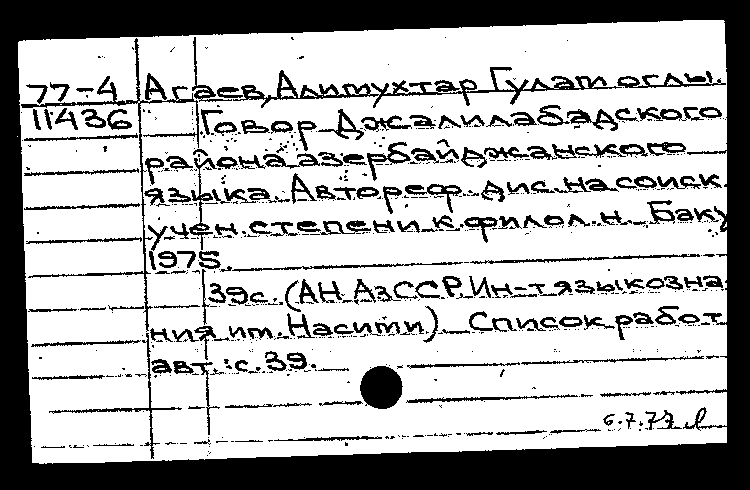 77-4 Агаев, Алимухтар Гулам оглы.
11436 Говор Джалилабадского
района азербайджанского
языка. Автореф. дис. на соиск.
учен. степени к. филол. н. Баку
1975.
39с. (АН АзССР. Ин-т языкозна
ния им. Насими) Список работ
авт.: с. 39.
6.7.77